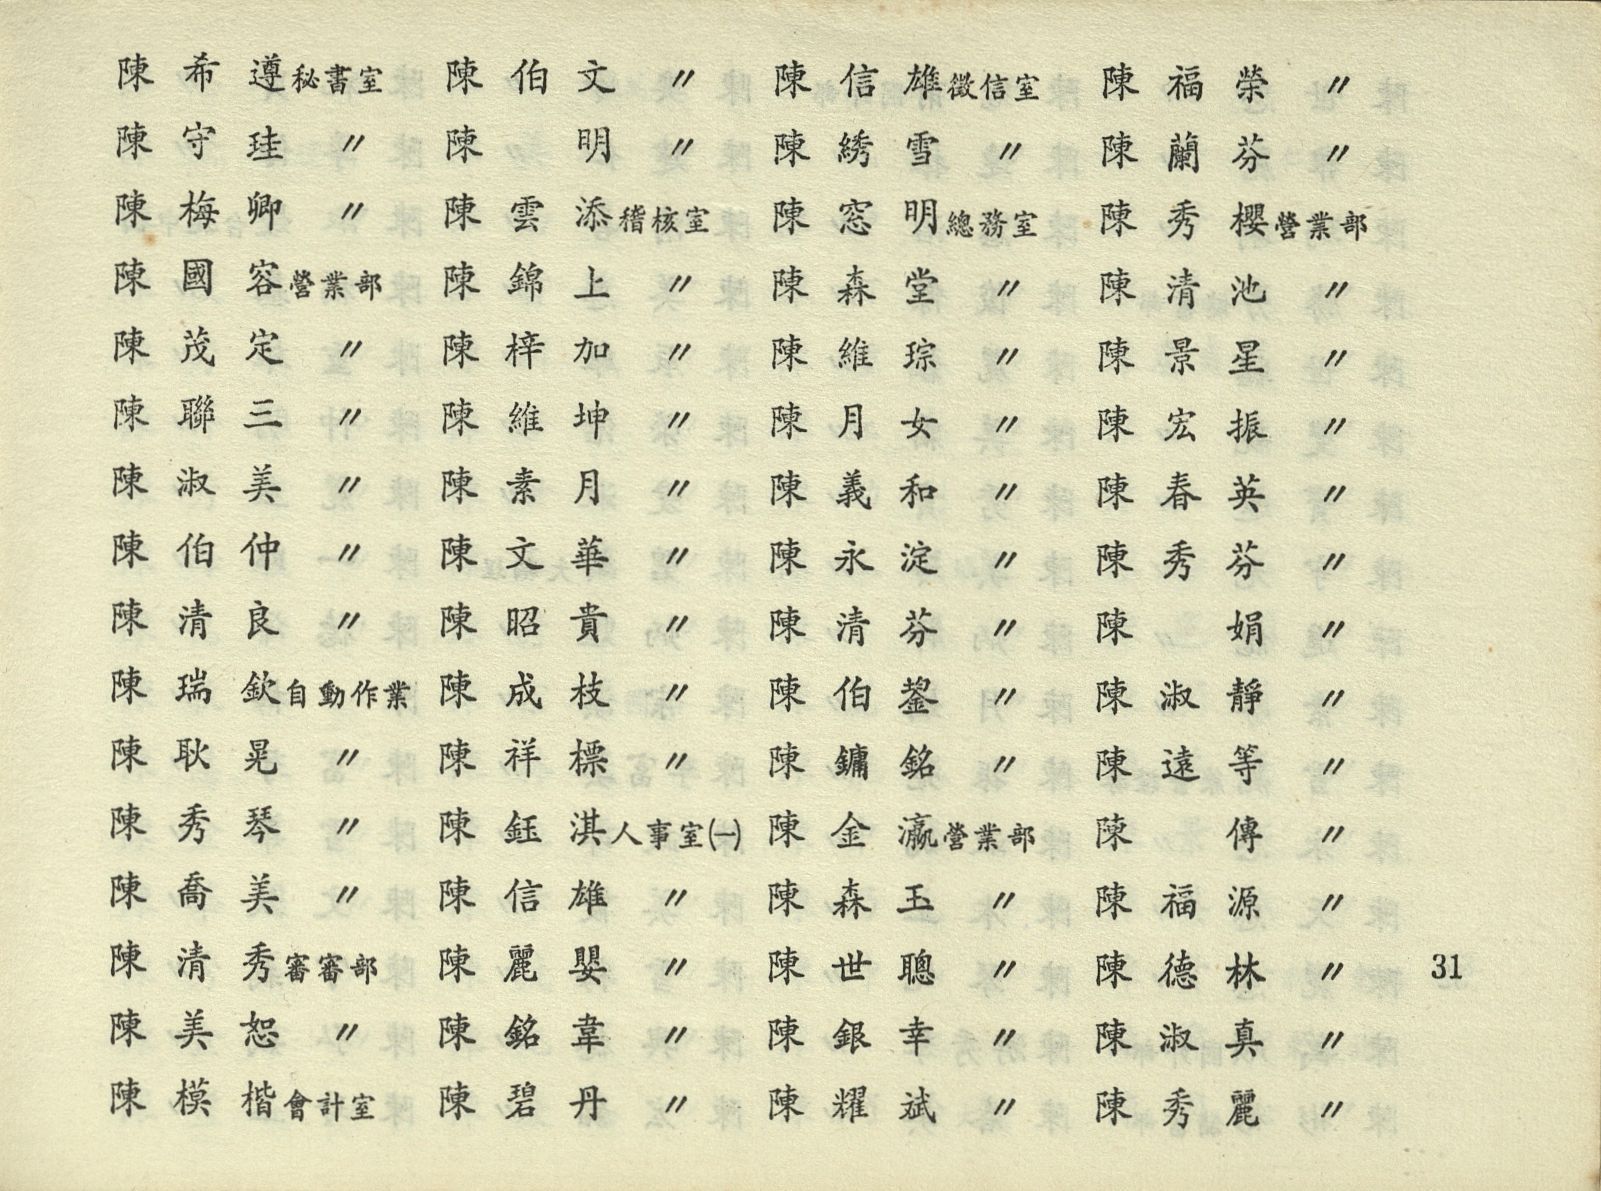 陳希遵秘書室 陳伯文〃 陳信雄徵信室 陳福榮〃
陳守珪〃 陳明〃 陳綉雪〃 陳蘭芬〃
陳梅卿〃 陳雲添稽核室 陳窓明總務室 陳秀櫻營業部
陳國容營業部 陳錦上〃 陳森堂〃 陳清池〃
陳茂定〃 陳梓加〃 陳維琮〃 陳景星〃
陳聯三〃 陳維坤〃 陳月女〃 陳宏振〃
陳淑美〃 陳素月〃 陳義和〃 陳春英〃
陳伯仲〃 陳文華〃 陳永淀〃 陳秀芬〃
陳清良〃 陳昭貴〃 陳清芬〃 陳娟〃
陳瑞欽自動作業 陳成枝〃 陳伯鋆〃 陳淑靜〃
陳耿晃〃 陳祥標〃 陳鏞銘〃 陳遠等〃
陳秀琴〃 陳鈺淇人事室㈠ 陳金瀛營業部 陳傳〃
陳喬美〃 陳信雄〃 陳森玉〃 陳福源〃
陳清秀審審部 陳麗嬰〃 陳世聰〃 陳德林〃 31
陳美恕〃 陳銘韋〃 陳銀幸〃 陳淑真〃
陳模楷會計室 陳碧丹〃 陳耀斌〃 陳秀麗〃